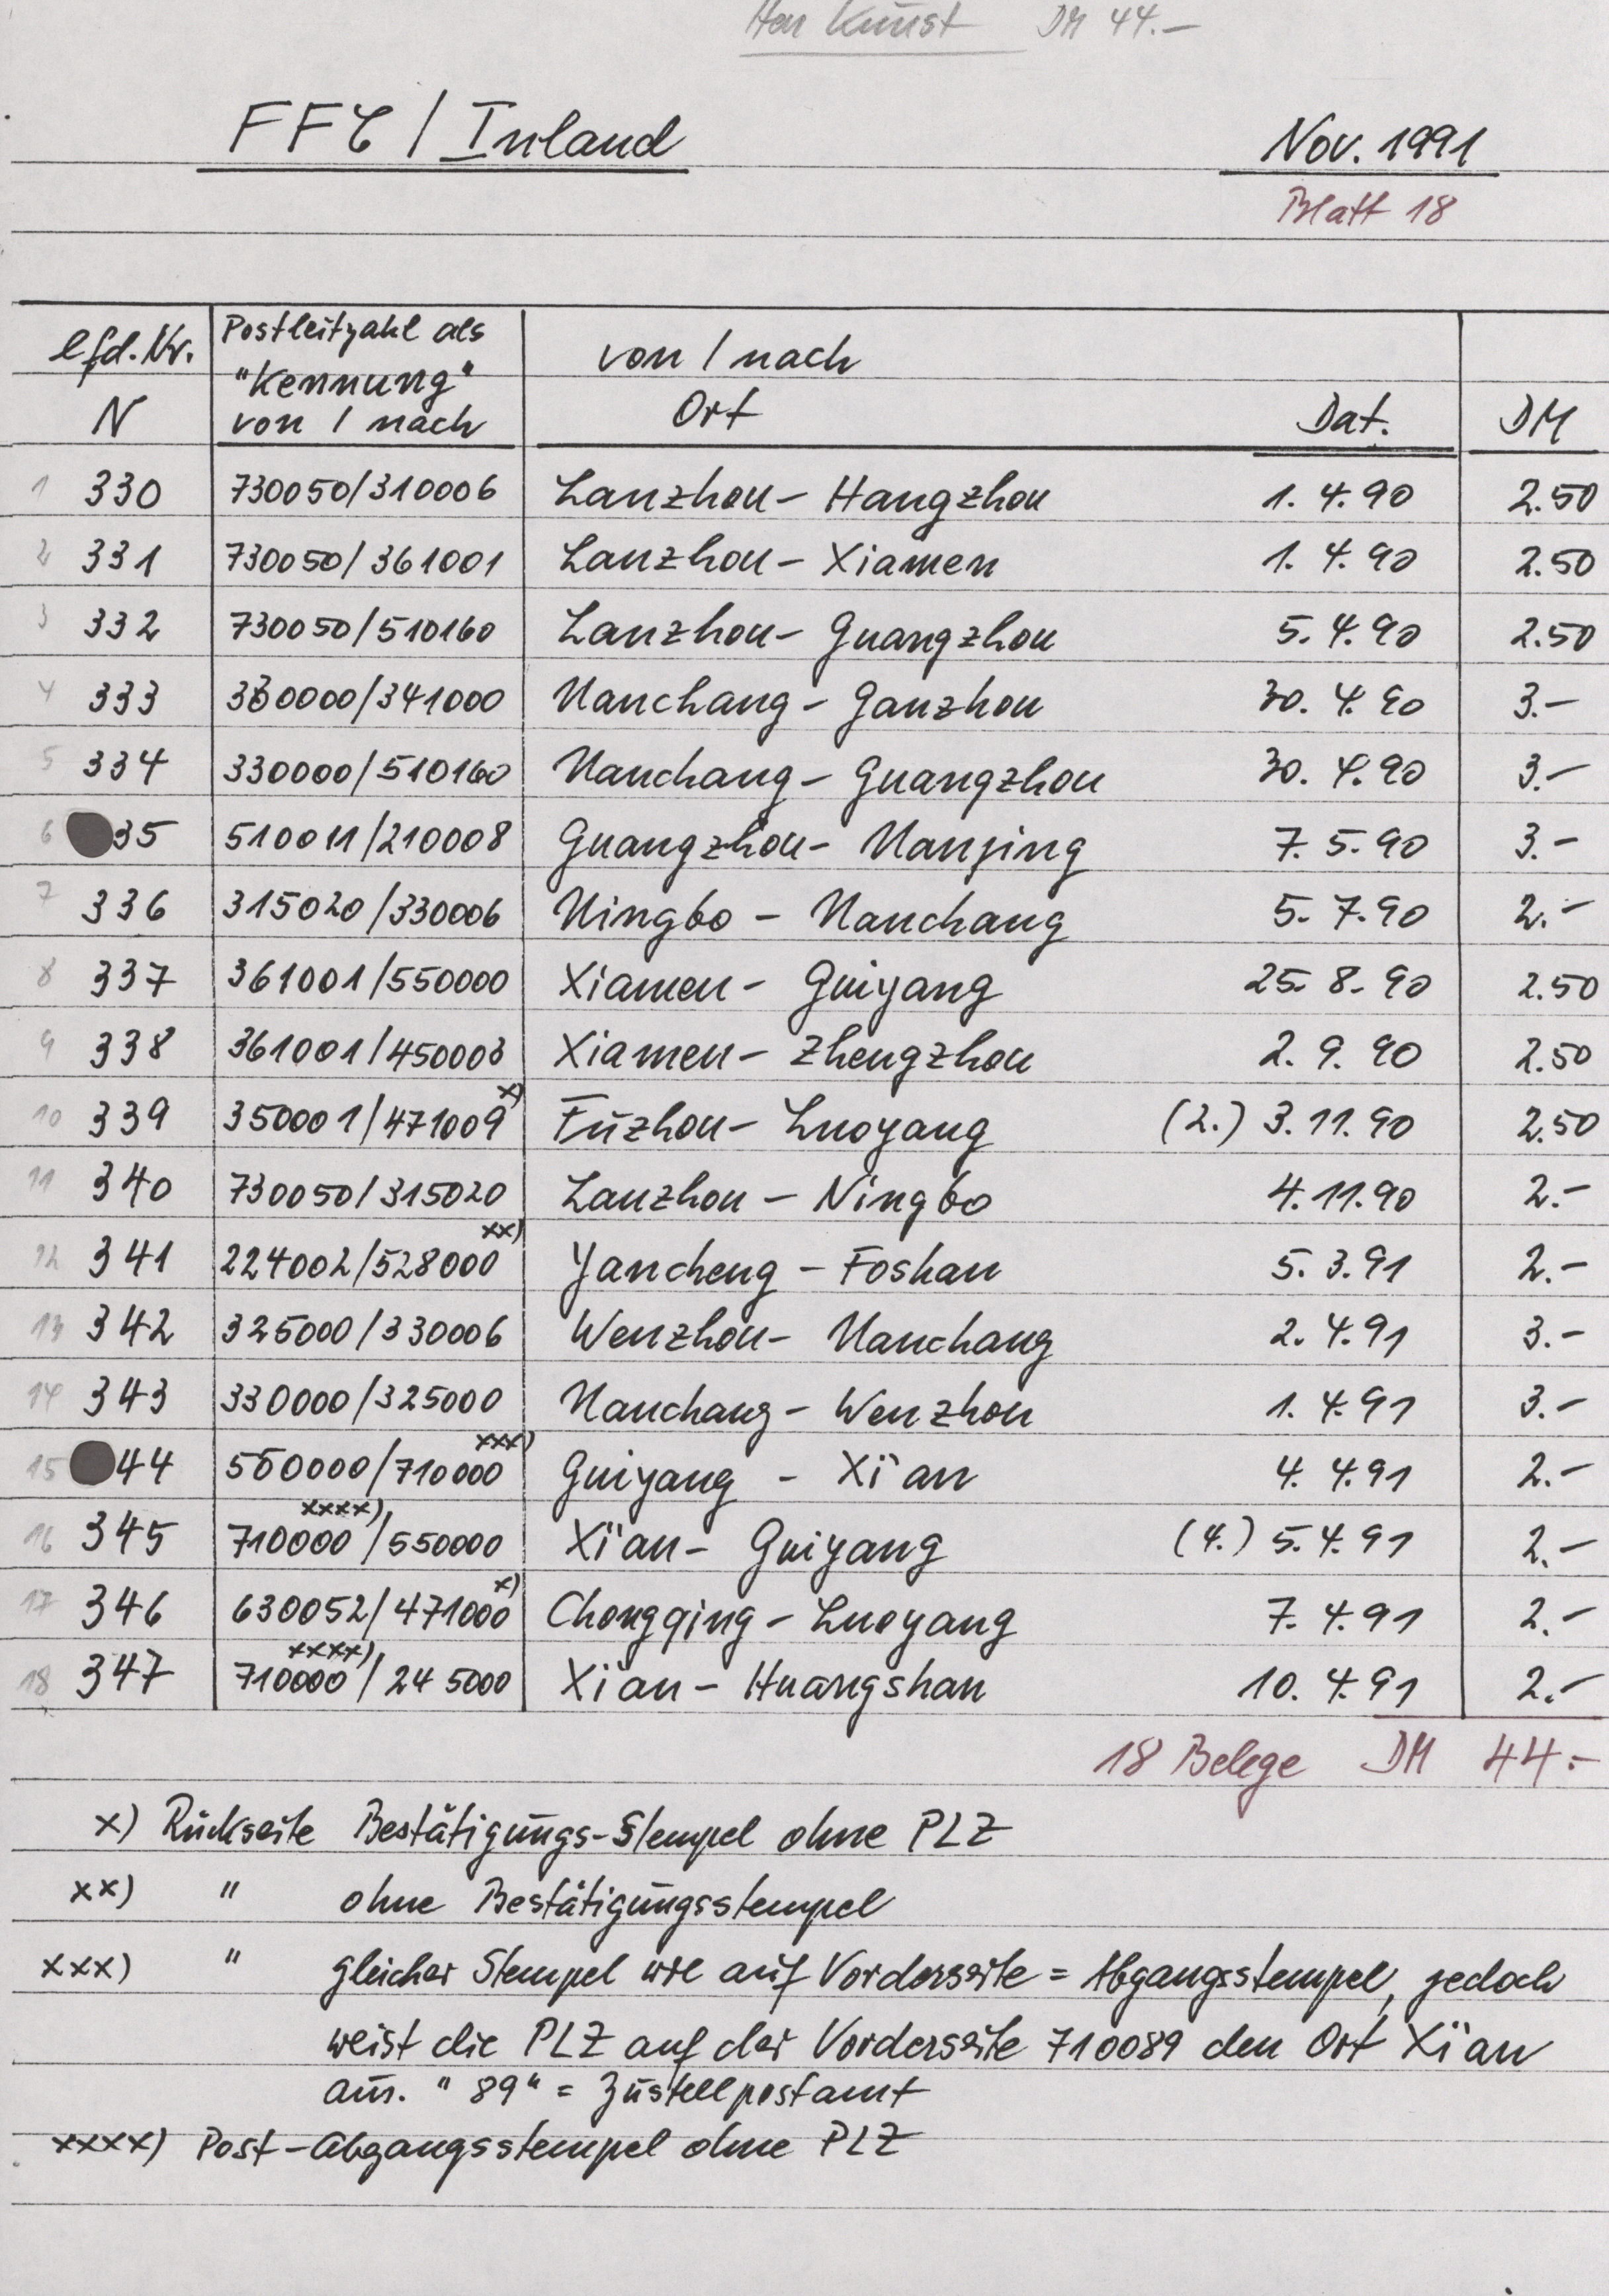 Herr Kunst DM 44.—
FFC / Inland Nov. 1991
Blatt 18
lfd. Nr. Postleitzahl als von / nach
"Kennung"
N von / nach Ort Dat. DM
1 330 730050/310006 Lanzhou – Hangzhou 1. 4. 90 2.50
2 331 730050/361001 Lanzhou – Xiamen 1. 4. 90 2.50
3 332 730050/510160 Lanzhou – Guangzhou 5. 4. 90 2.50
4 333 330000/341000 Nanchang – Ganzhou 30. 4. 90 3.–
5 334 330000/510160 Nanchang – Guangzhou 30. 4. 90 3.–
6 35 510011/210008 Guangzhou – Nanjing 7. 5. 90 3.–
7 336 315020/330006 Ningbo – Nanchang 5. 7. 90 2.–
8 337 361001/550000 Xiamen – Guiyang 25. 8. 90 2.50
9 338 361001/450003 Xiamen – Zhengzhou 2. 9. 90 2.50
10 339 350001/471009 x) Fuzhou – Luoyang (2.) 3. 11. 90 2.50
11 340 730050/315020 Lanzhou – Ningbo 4. 11. 90 2.–
12 341 224002/528000 xx) Yancheng – Foshan 5. 3. 91 2.–
13 342 325000/330006 Wenzhou – Nanchang 2. 4. 91 3.–
14 343 330000/325000 Nanchang – Wenzhou 1. 4. 91 3.–
15 44 550000/710000 xxx) Guiyang – Xi'an 4. 4. 91 2.–
16 345 710000 xxxx) /550000 Xi'an – Guiyang (4.) 5. 4. 91 2.–
17 346 630052/471000 x) Chongqing – Luoyang 7. 4. 91 2.–
18 347 710000 xxxx) /245000 Xi'an – Huangshan 10. 4. 91 2.–
18 Belege DM 44.–
x) Rückseite Bestätigungs-Stempel ohne PLZ
xx) " ohne Bestätigungsstempel
xxx) " gleicher Stempel wie auf Vorderseite = Abgangsstempel, jedoch
weist die PLZ auf der Vorderseite 710089 den Ort Xi'an
aus. "89" = Zustellpostamt
xxxx) Post-Abgangsstempel ohne PLZ